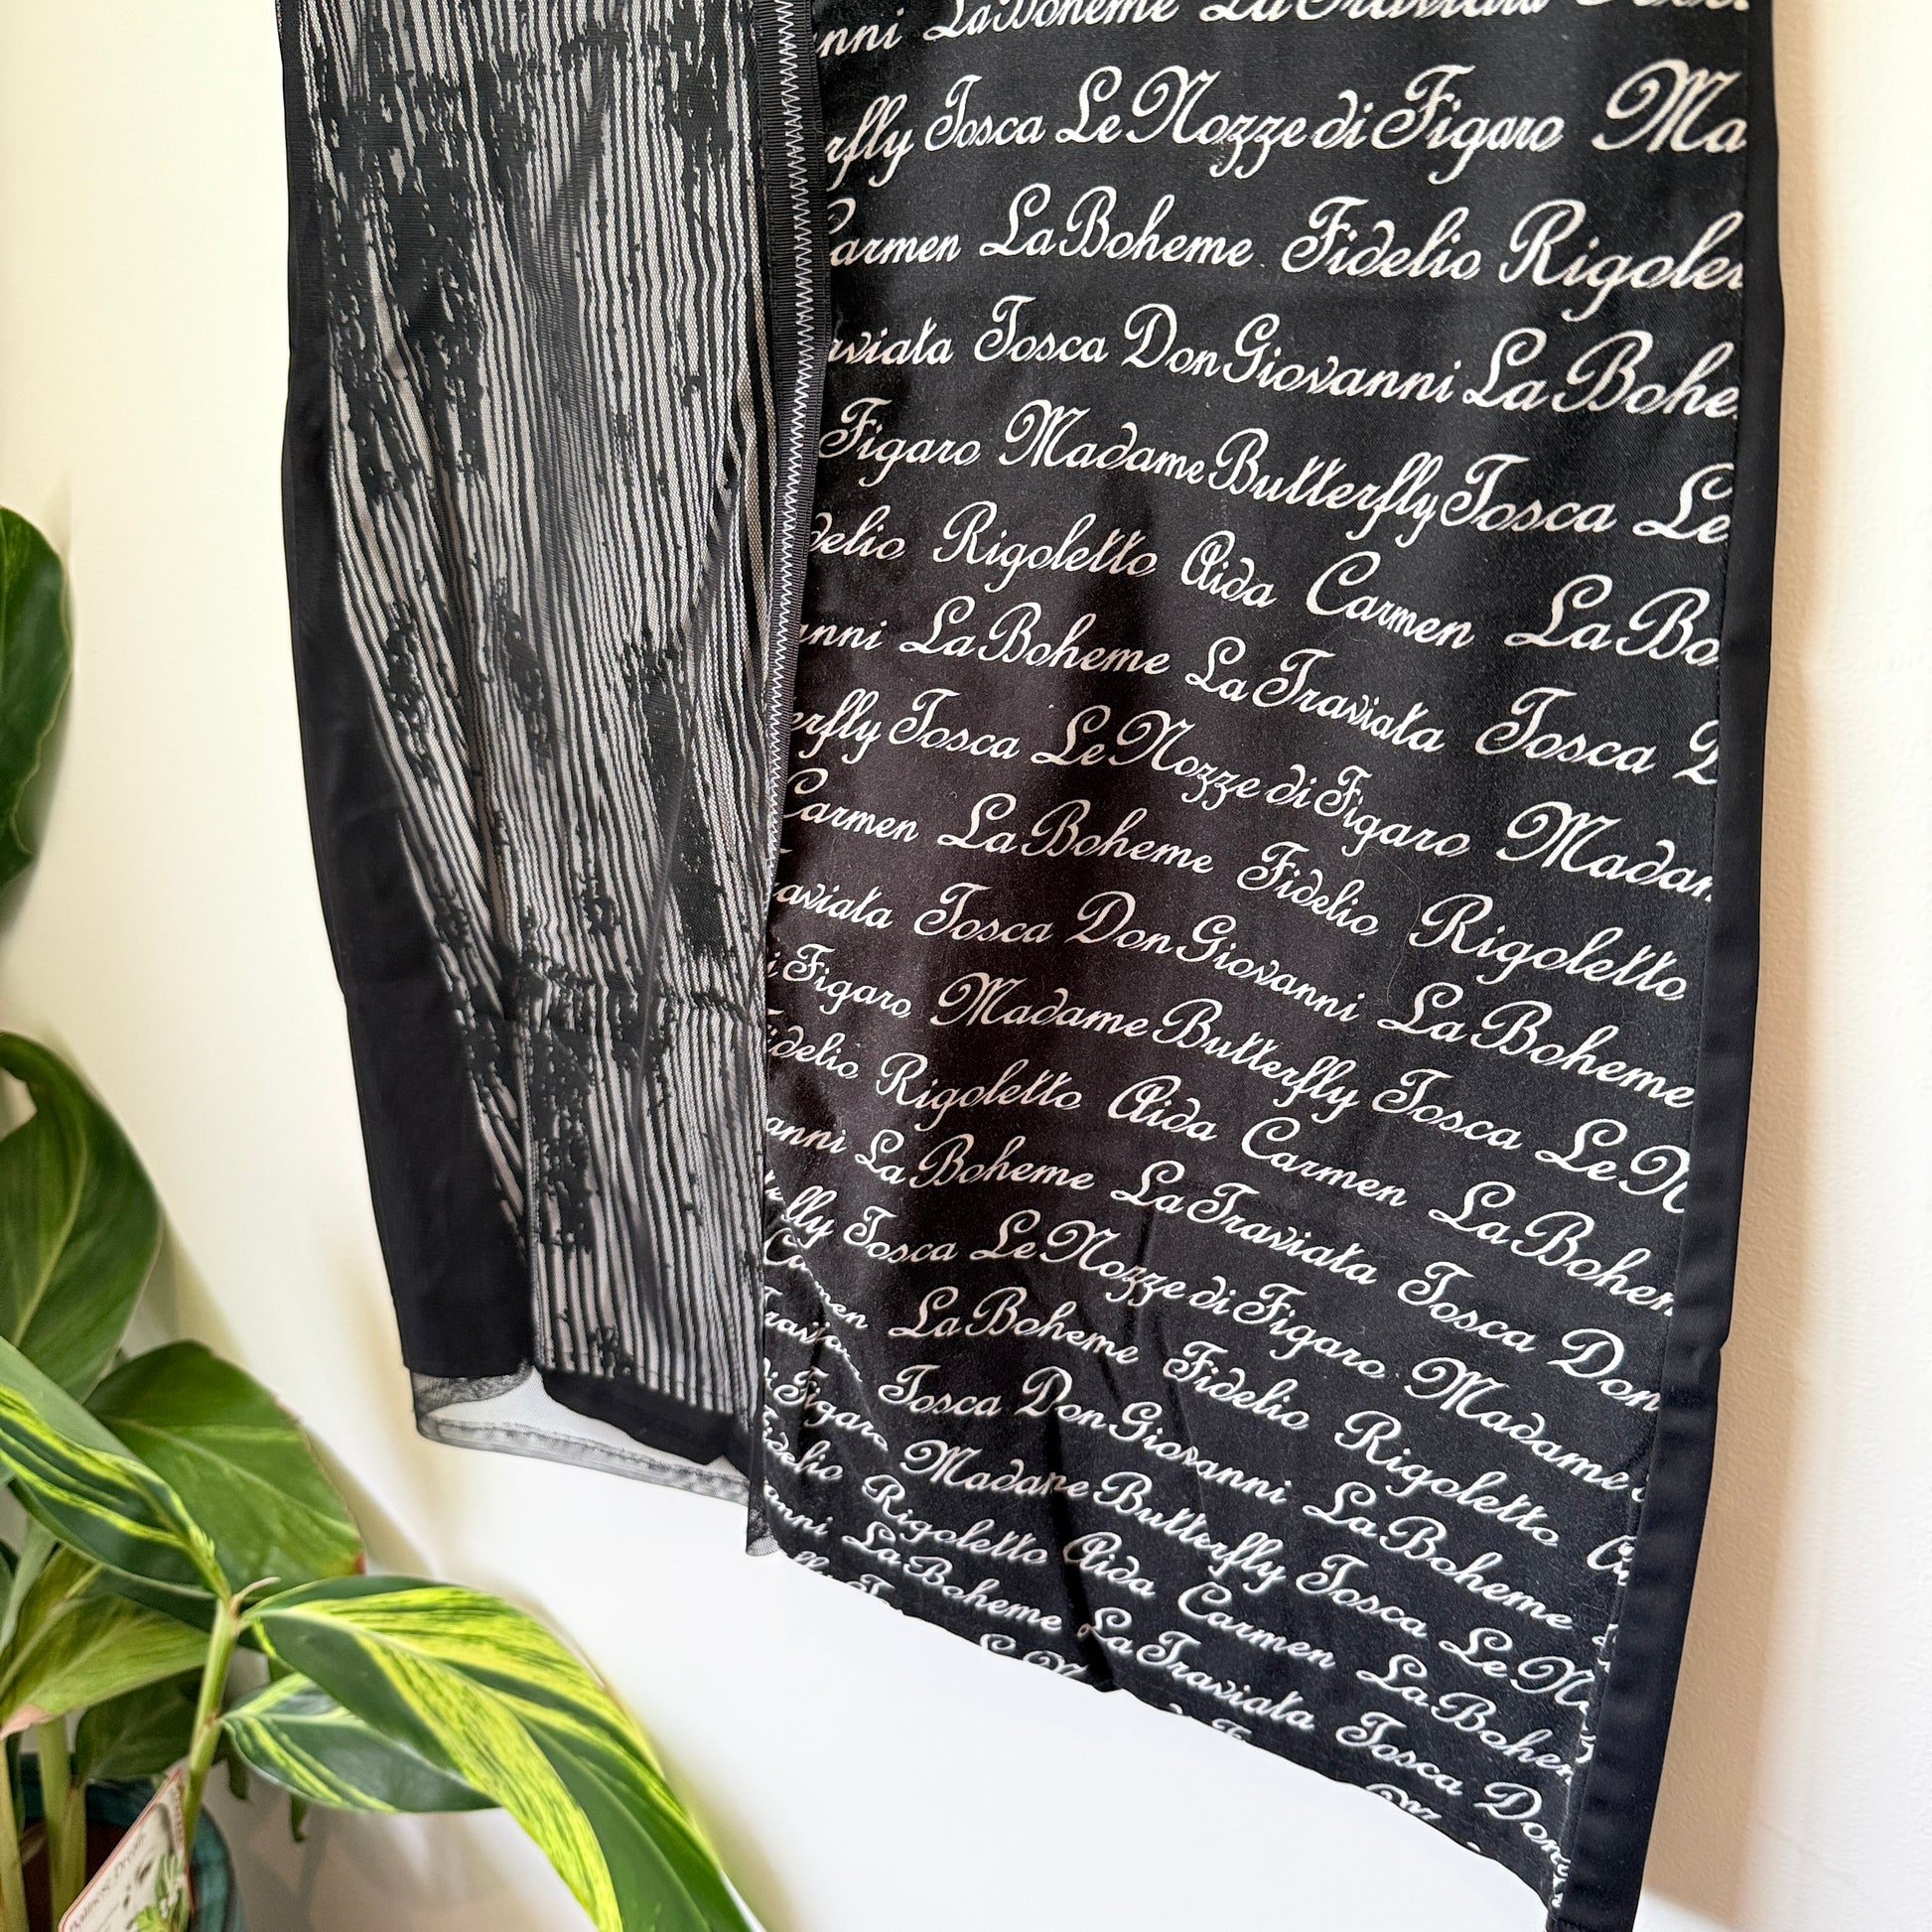 nni La Boheme La Traviata
rfly Tosca Le Nozze di Figaro Ma
Carmen La Boheme Fidelio Rigolet
aviata Tosca Don Giovanni La Bohe
Figaro Madame Butterfly Tosca Le
delio Rigoletto Aida Carmen La Bo
anni La Boheme La Traviata Tosca D
erfly Tosca Le Nozze di Figaro Madam
Carmen La Boheme Fidelio Rigoletto
raviata Tosca Don Giovanni La Boheme
i Figaro Madame Butterfly Tosca Le N
idelio Rigoletto Aida Carmen La Bohem
anni La Boheme La Traviata Tosca Don
fly Tosca Le Nozze di Figaro Madame
Carmen La Boheme Fidelio Rigoletto
Traviata Tosca Don Giovanni La Boheme
i Figaro Madame Butterfly Tosca Le No
idelio Rigoletto Aida Carmen La Bohem
anni La Boheme La Traviata Tosca Don